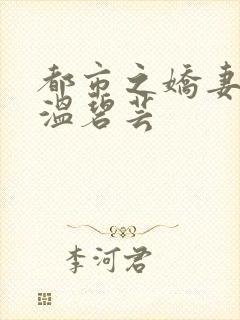 都市之嬌妻
溫碧芸
李河君